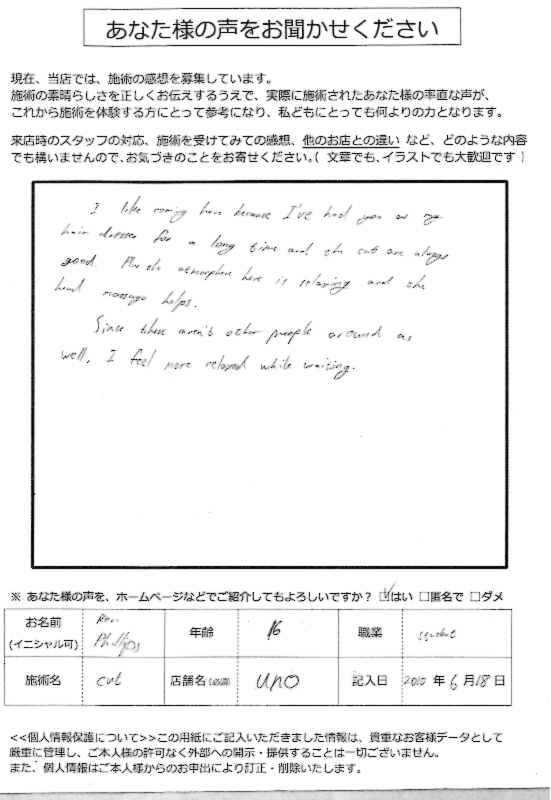 あなた様の声をお聞かせください
現在、当店では、施術の感想を募集しています。
施術の素晴らしさを正しくお伝えするうえで、実際に施術されたあなた様の率直な声が、
これから施術を体験する方にとって参考になり、私どもにとっても何よりの力となります。
来店時のスタッフの対応、施術を受けてみての感想、他のお店との違い など、どのような内容
でも構いませんので、お気づきのことをお寄せください。( 文章でも、イラストでも大歓迎です )
I like coming here because I've had you as my
hair dresser for a long time and the cuts are always
good. Plus the atmosphere here is relaxing and the
head massage helps.
Since there aren't other people around as
well, I feel more relaxed while waiting.
※ あなた様の声を、ホームページなどでご紹介してもよろしいですか? ☑はい □匿名で □ダメ
お名前
(イニシャル可)
Phillips
年齢 16 職業 student
施術名 cut 店舗名(必須) uno 記入日 2010 年 6 月 18 日
<<個人情報保護について>>この用紙にご記入いただきました情報は、貴重なお客様データとして
厳重に管理し、ご本人様の許可なく外部への開示・提供することは一切ございません。
また、個人情報はご本人様からのお申出により訂正・削除いたします。